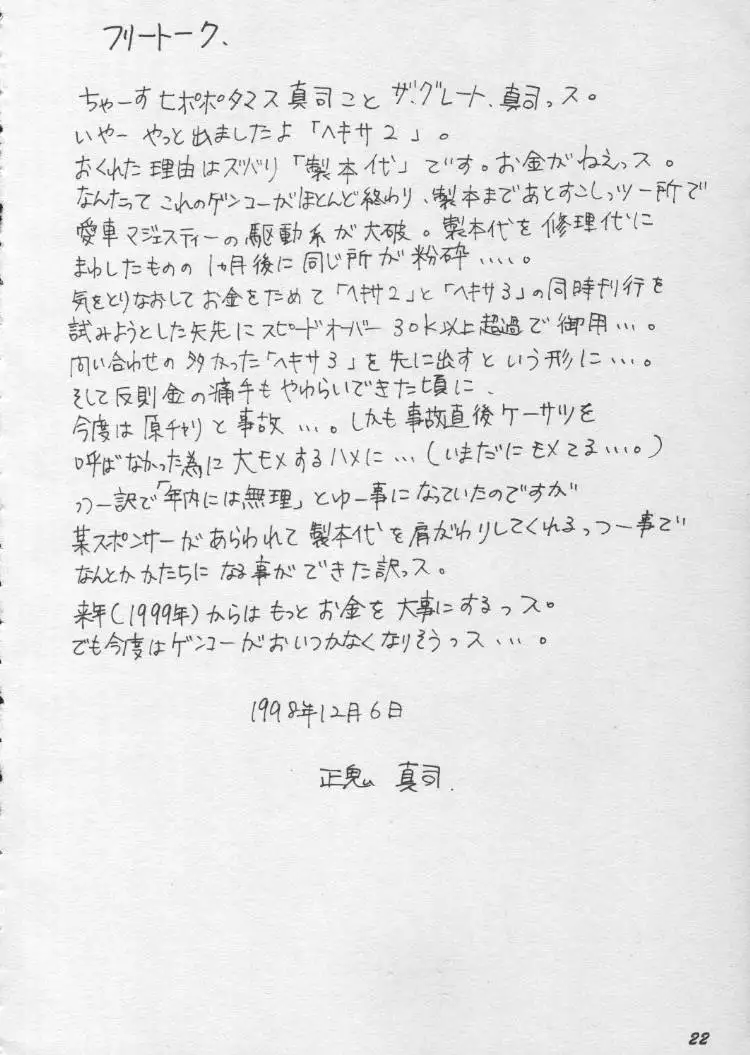 フリートーク、
ちゃーす ヒポポタマス真司こと ザ・グレート、真司っス。
いやー やっと出ましたよ「ヘキサ2」。
おくれた理由はズバリ「製本代」です。お金がねえっス。
なんたって これのゲンコーがほとんど終わり、製本まであとすこしっツー所で
愛車マジェスティーの駆動系が大破。製本代を修理代に
まわしたものの 1ヵ月後に同じ所が粉砕、、、、。
気をとりなおしてお金をためて「ヘキサ2」と「ヘキサ3」の同時刊行を
試みようとした矢先にスピードオーバー 30k以上超過で御用…。
問い合わせの多かった「ヘキサ3」を先に出すという形に…。
そして反則金の痛手もやわらいできた頃に、
今度は原チャリと事故…。しかも事故直後ケーサツを
呼ばなかった為に大モメするハメに…(いまだにモメてる…。)
っつー訳で「年内には無理」とゆー事になっていたのですが
某スポンサーがあらわれて製本代を肩がわりしてくれるっつー事で
なんとかかたちになる事ができた訳っス。
来年(1999年)からはもっとお金を大事にするっス。
でも今度はゲンコーがおいつかなくなりそうっス…。
1998年12月6日
正鬼 真司.
22